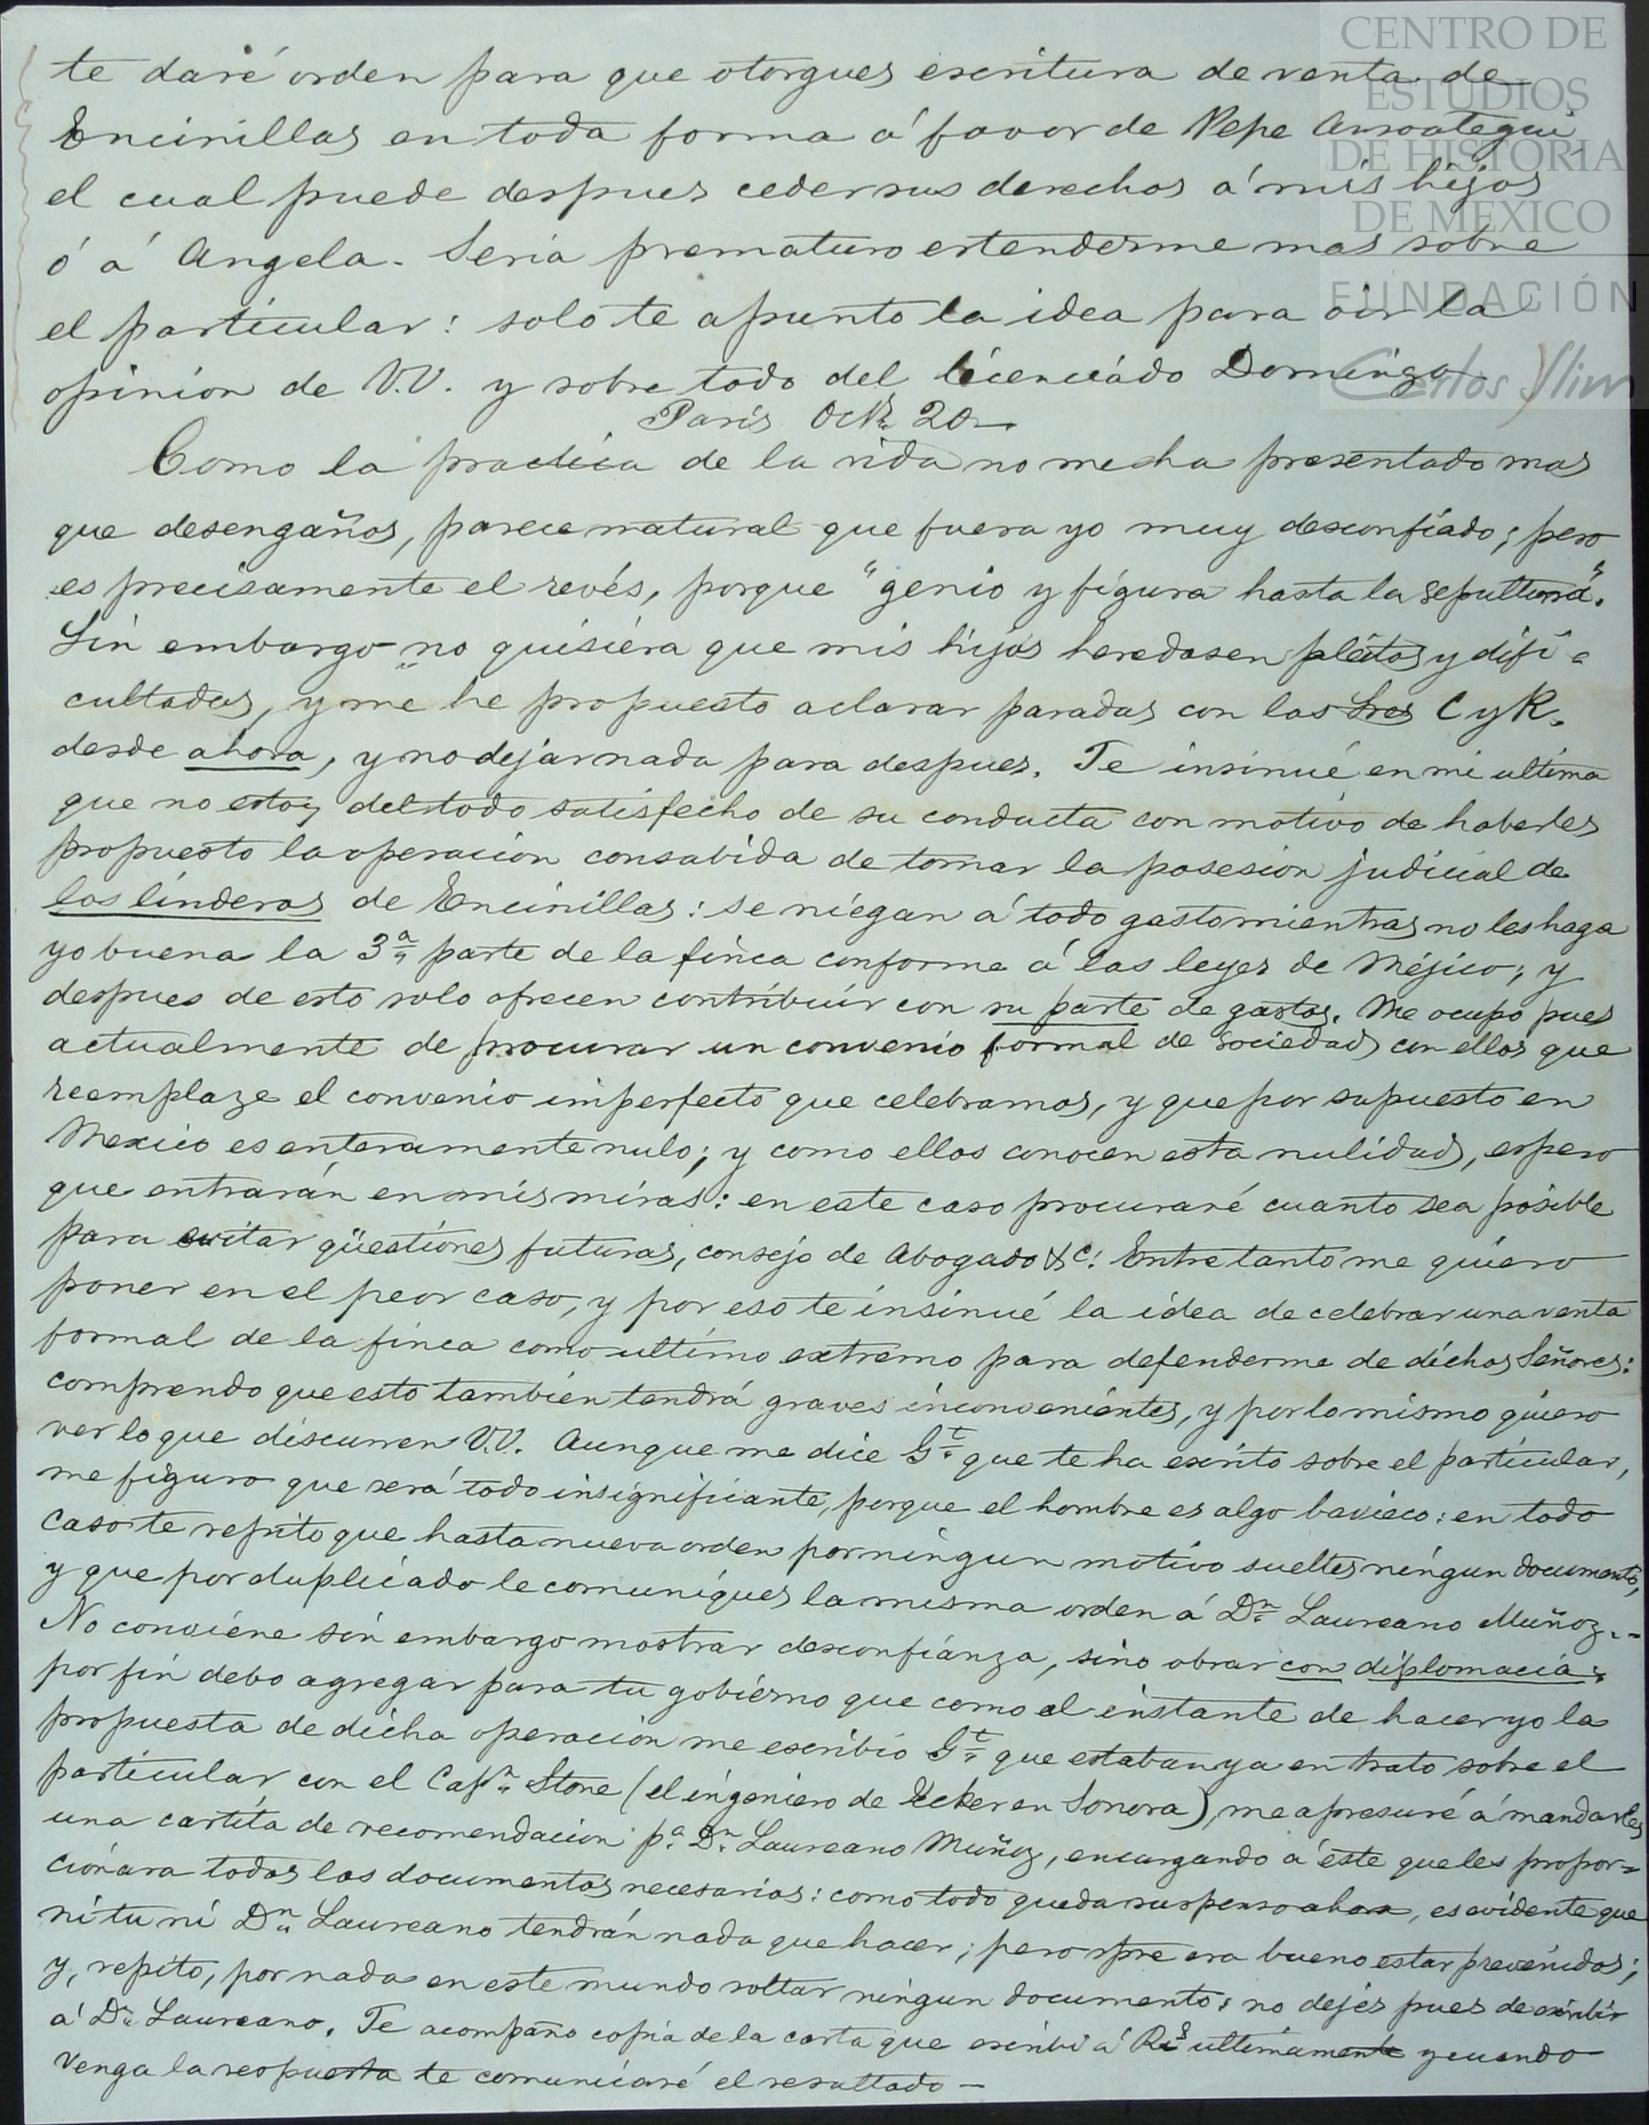 CENTRO DE
ESTUDIOS
DE HISTORIA
DE MEXICO
FUNDACIÓN
Carlos Slim
te daré orden para que otorgues escritura de venta de
Encinillas en toda forma á favor de Pepe Ansoategui
el cual puede despues ceder sus derechos á mis hijos
ó á Angela. Seria prematuro estenderme mas sobre
el particular: solo te apunto la idea para oir la
opinion de V.V. y sobre todo del licenciado Domingo
Paris Octe. 20
Como la practica de la vida no me ha presentado mas
que desengaños, parece natural que fuera yo muy desconfiado; pero
es precisamente el revés, porque "genio y figura hasta la sepultura".
Sin embargo no quisiera que mis hijos heredasen pleitos y difi-
cultades, y me he propuesto aclarar paradas con los Sres C y R.
desde ahora, y no dejar nada para despues. Te insinué en mi ultima
que no estoy del todo satisfecho de su conducta con motivo de haberles
propuesto la operacion consabida de tomar la posesion judicial de
los linderos de Encinillas: se niegan á todo gasto mientras no les haga
yo buena la 3ª parte de la finca conforme á las leyes de Méjico; y
despues de esto solo ofrecen contribuir con su parte de gastos. Me ocupo pues
actualmente de procurar un convenio formal de sociedad con ellos que
reemplaze el convenio imperfecto que celebramos, y que por supuesto en
Mexico es enteramente nulo; y como ellos conocen esta nulidad, espero
que entrarán en mis miras: en este caso procuraré cuanto sea posible
para evitar qüestiones futuras, consejo de Abogado &c. Entretanto me quiero
poner en el peor caso, y por eso te insinué la idea de celebrar una venta
formal de la finca como ultimo extremo para defenderme de dichos Señores:
comprendo que esto tambien tendrá graves inconvenientes, y por lo mismo quiero
ver lo que discurren V.V. Aunque me dice Gt. que te ha escrito sobre el particular,
me figuro que será todo insignificante, porque el hombre es algo bavieco: en todo
caso te repito que hasta nueva orden por ningun motivo sueltes ningun documento,
y que por duplicado le comuniques la misma orden á Dn. Laureano Muñoz.-
No conviene sin embargo mostrar desconfianza, sino obrar con diplomacia:
por fin debo agregar para tu gobierno que como al instante de hacer yo la
propuesta de dicha operacion me escribió Gt. que estaban ya en trato sobre el
particular con el Capn. Stone (el ingeniero de Jecker en Sonora), me apresuré á mandarles
una cartita de recomendacion pa. Dn. Laureano Muñoz, encargando á este que les propor-
cionara todos los documentos necesarios: como todo queda suspenso ahora, es evidente que
ni tu ni Dn. Laureano tendrán nada que hacer; pero spre era bueno estar prevenidos;
y, repito, por nada en este mundo soltar ningun documento: no dejes pues de escribir
á Dn. Laureano. Te acompaño copia de la carta que escribi á Rs ultimamente y cuando
venga la respuesta te comunicaré el resultado —